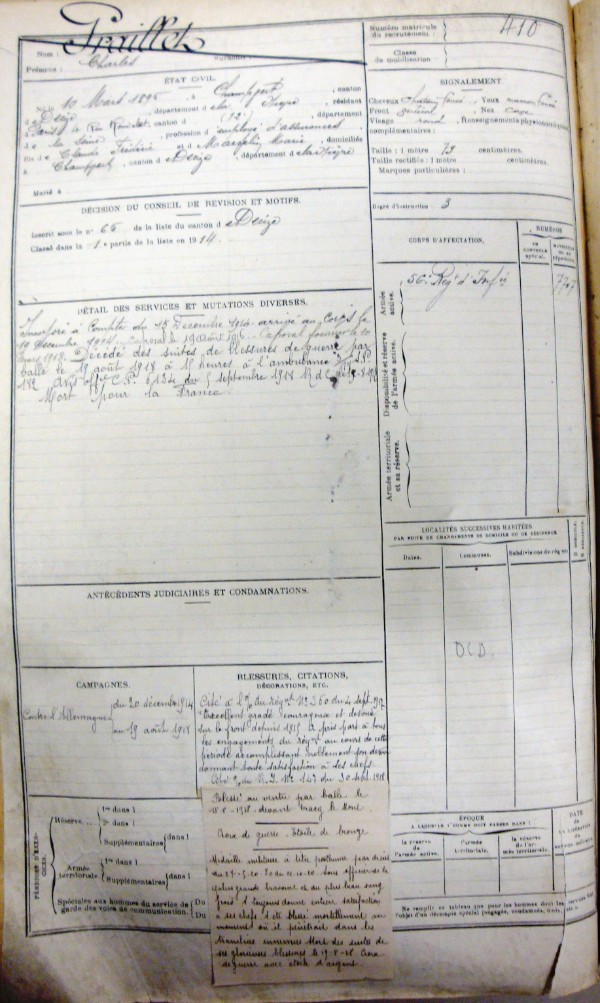 Praillet
Nom :
Prénoms : Charles
Surnoms :
Numéro matricule du recrutement : 410
Classe de mobilisation :
ÉTAT CIVIL.
Né le 10 Mars 1895, à Champvert, canton
d e Decize, département d e la Nièvre, résidant
Paris, canton d (12e), département
d e la Seine, profession d' employé d'assurances
fils de Claude Frédéric et d e Marie, domiciliés
à Champvert, canton d e Decize, département d e la Nièvre
Marié à
SIGNALEMENT.
Cheveux châtain foncé. Yeux marron foncé
Front Nez
Visage rond. Renseignements physionomiques
complémentaires :
Taille : 1 mètre 73 centimètres.
Taille rectifiée : 1 mètre centimètres.
Marques particulières :
DÉCISION DU CONSEIL DE RÉVISION ET MOTIFS.
Inscrit sous le n° 65 de la liste du canton d e Decize
Classé dans la 1e partie de la liste en 1914.
Degré d'instruction : 3
CORPS D'AFFECTATION.
NUMÉROS
au contrôle spécial.
Armée active.
56e Rég t d'Inf ie
Disponibilité et réserve de l'armée active.
Armée territoriale et sa réserve.
DÉTAIL DES SERVICES ET MUTATIONS DIVERSES.
Incorporé à Compter du 15 Décembre 1914 arrivé au Corps le
19 Décembre 1914. Caporal le 19 août 1916. Caporal fourrier le 20
mars 1918. Décédé des suites de blessures de guerre par
balle le 19 août 1918 à 15 heures à l'ambulance
Avis off el C.P. 6134 du 5 septembre 1918
Mort pour la France.
LOCALITÉS SUCCESSIVES HABITÉES
PAR SUITE DE CHANGEMENTS DE DOMICILE OU DE RÉSIDENCE
Dates.
Communes.
Subdivisions de rég on
DCD.
ANTÉCÉDENTS JUDICIAIRES ET CONDAMNATIONS.
CAMPAGNES.
Contre l'Allemagne
du 20 décembre 1914
au 19 août 1918
BLESSURES, CITATIONS,
DÉCORATIONS, ETC.
Cité à l'O/ du Rég nt N° 260 du 4 sept. 1917
"Excellent gradé courageux et dévoué
sur le front depuis 1915. A pris part à tous
les engagements du rég nt au cours de cette
période accomplissant noblement son devoir
donnant toute satisfaction à ses chefs
Cité N° 147 du 30 sept. 1918
Blessé au ventre par balle le
18-8-1918 devant
Croix de guerre. Etoile de bronze
Médaille militaire à titre posthume par décret
du sous officier de la
plus grande bravoure et du plus beau sang
froid. A toujours donné entière satisfaction
à ses chefs. A été blessé mortellement au
moment où il pénétrait dans les
tranchées ennemies. Mort des suites de
ses glorieuses blessures le 19-8-18. Croix
de guerre avec étoile d'argent.
PÉRIODES D'EXERCICES.
Réserve
1re dans l
2e dans l
Supplémentaires dans l
Armée territoriale
1re dans l
Supplémentaires dans l
Spéciales aux hommes du service de garde des voies de communication.
Du
Du
ÉPOQUE
À LAQUELLE L'HOMME DOIT PASSER DANS :
la réserve de l'armée active.
l'armée territoriale.
la réserve de l'armée territoriale.
DATE de la LIBÉRATION du service militaire.
Ne remplir ce tableau que pour les hommes dont
l'objet d'un décompte spécial (engagés, condamnés,